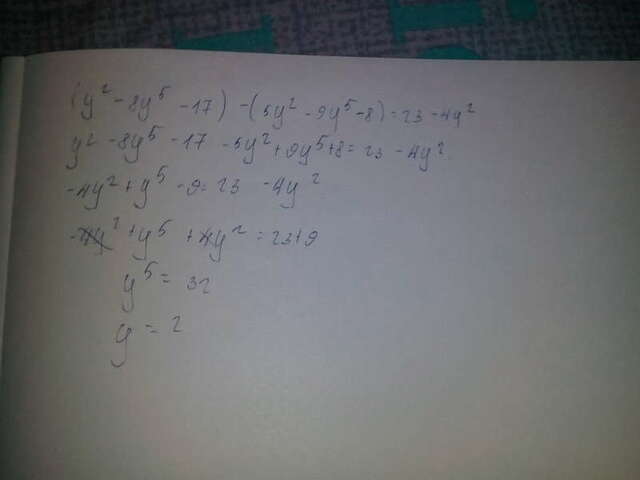 (y² - 8y⁵ - 17) - (5y² - 9y⁵ - 8) = 23 - 4y²
y² - 8y⁵ - 17 - 5y² + 9y⁵ + 8 = 23 - 4y²
-4y² + y⁵ - 9 = 23 - 4y²
-4y² + y⁵ + 4y² = 23 + 9
y⁵ = 32
y = 2